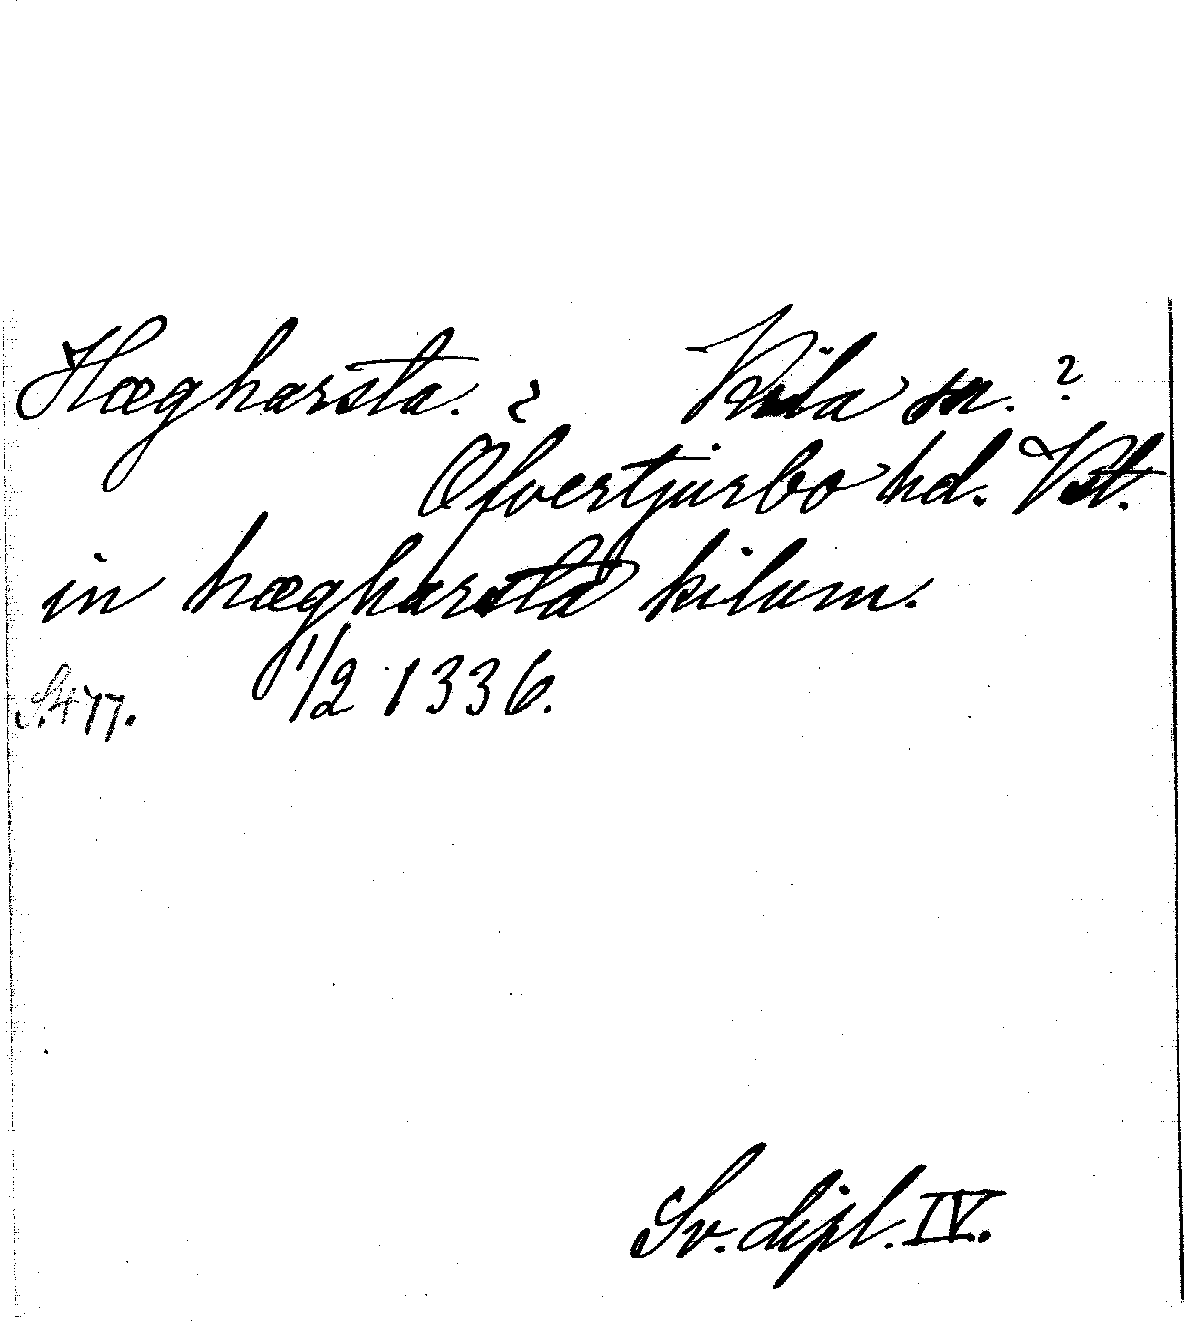 Hægharsta. ? Kila sn. ?
Öfvertjurbo hd. Vstl.
in hægharsta kilum.
S. 477. 1/2 1336.
Sv. dipl. IV.